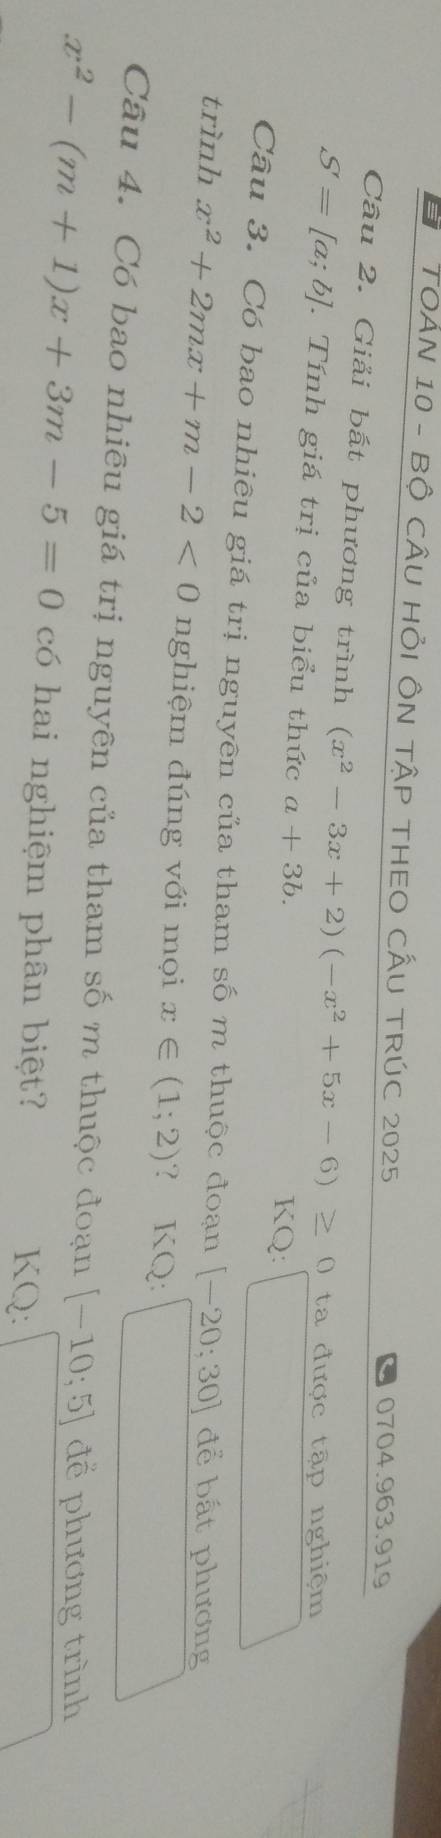 TOÁN 10 - BỘ CÂU HỎI ÔN TẬP THEO CẤU TRÚC 2025 0704.963.919
Câu 2. Giải bất phương trình (x² − 3x + 2) (−x² + 5x − 6) ≥ 0 ta được tập nghiệm
S = [a; b]. Tính giá trị của biểu thức a + 3b.
KQ:
Câu 3. Có bao nhiêu giá trị nguyên của tham số m thuộc đoạn [−20; 30] để bất phương
trình x² + 2mx + m − 2 < 0 nghiệm đúng với mọi x ∈ (1; 2)? KQ:
Câu 4. Có bao nhiêu giá trị nguyên của tham số m thuộc đoạn [−10; 5] để phương trình
x² − (m + 1)x + 3m − 5 = 0 có hai nghiệm phân biệt?
KQ: